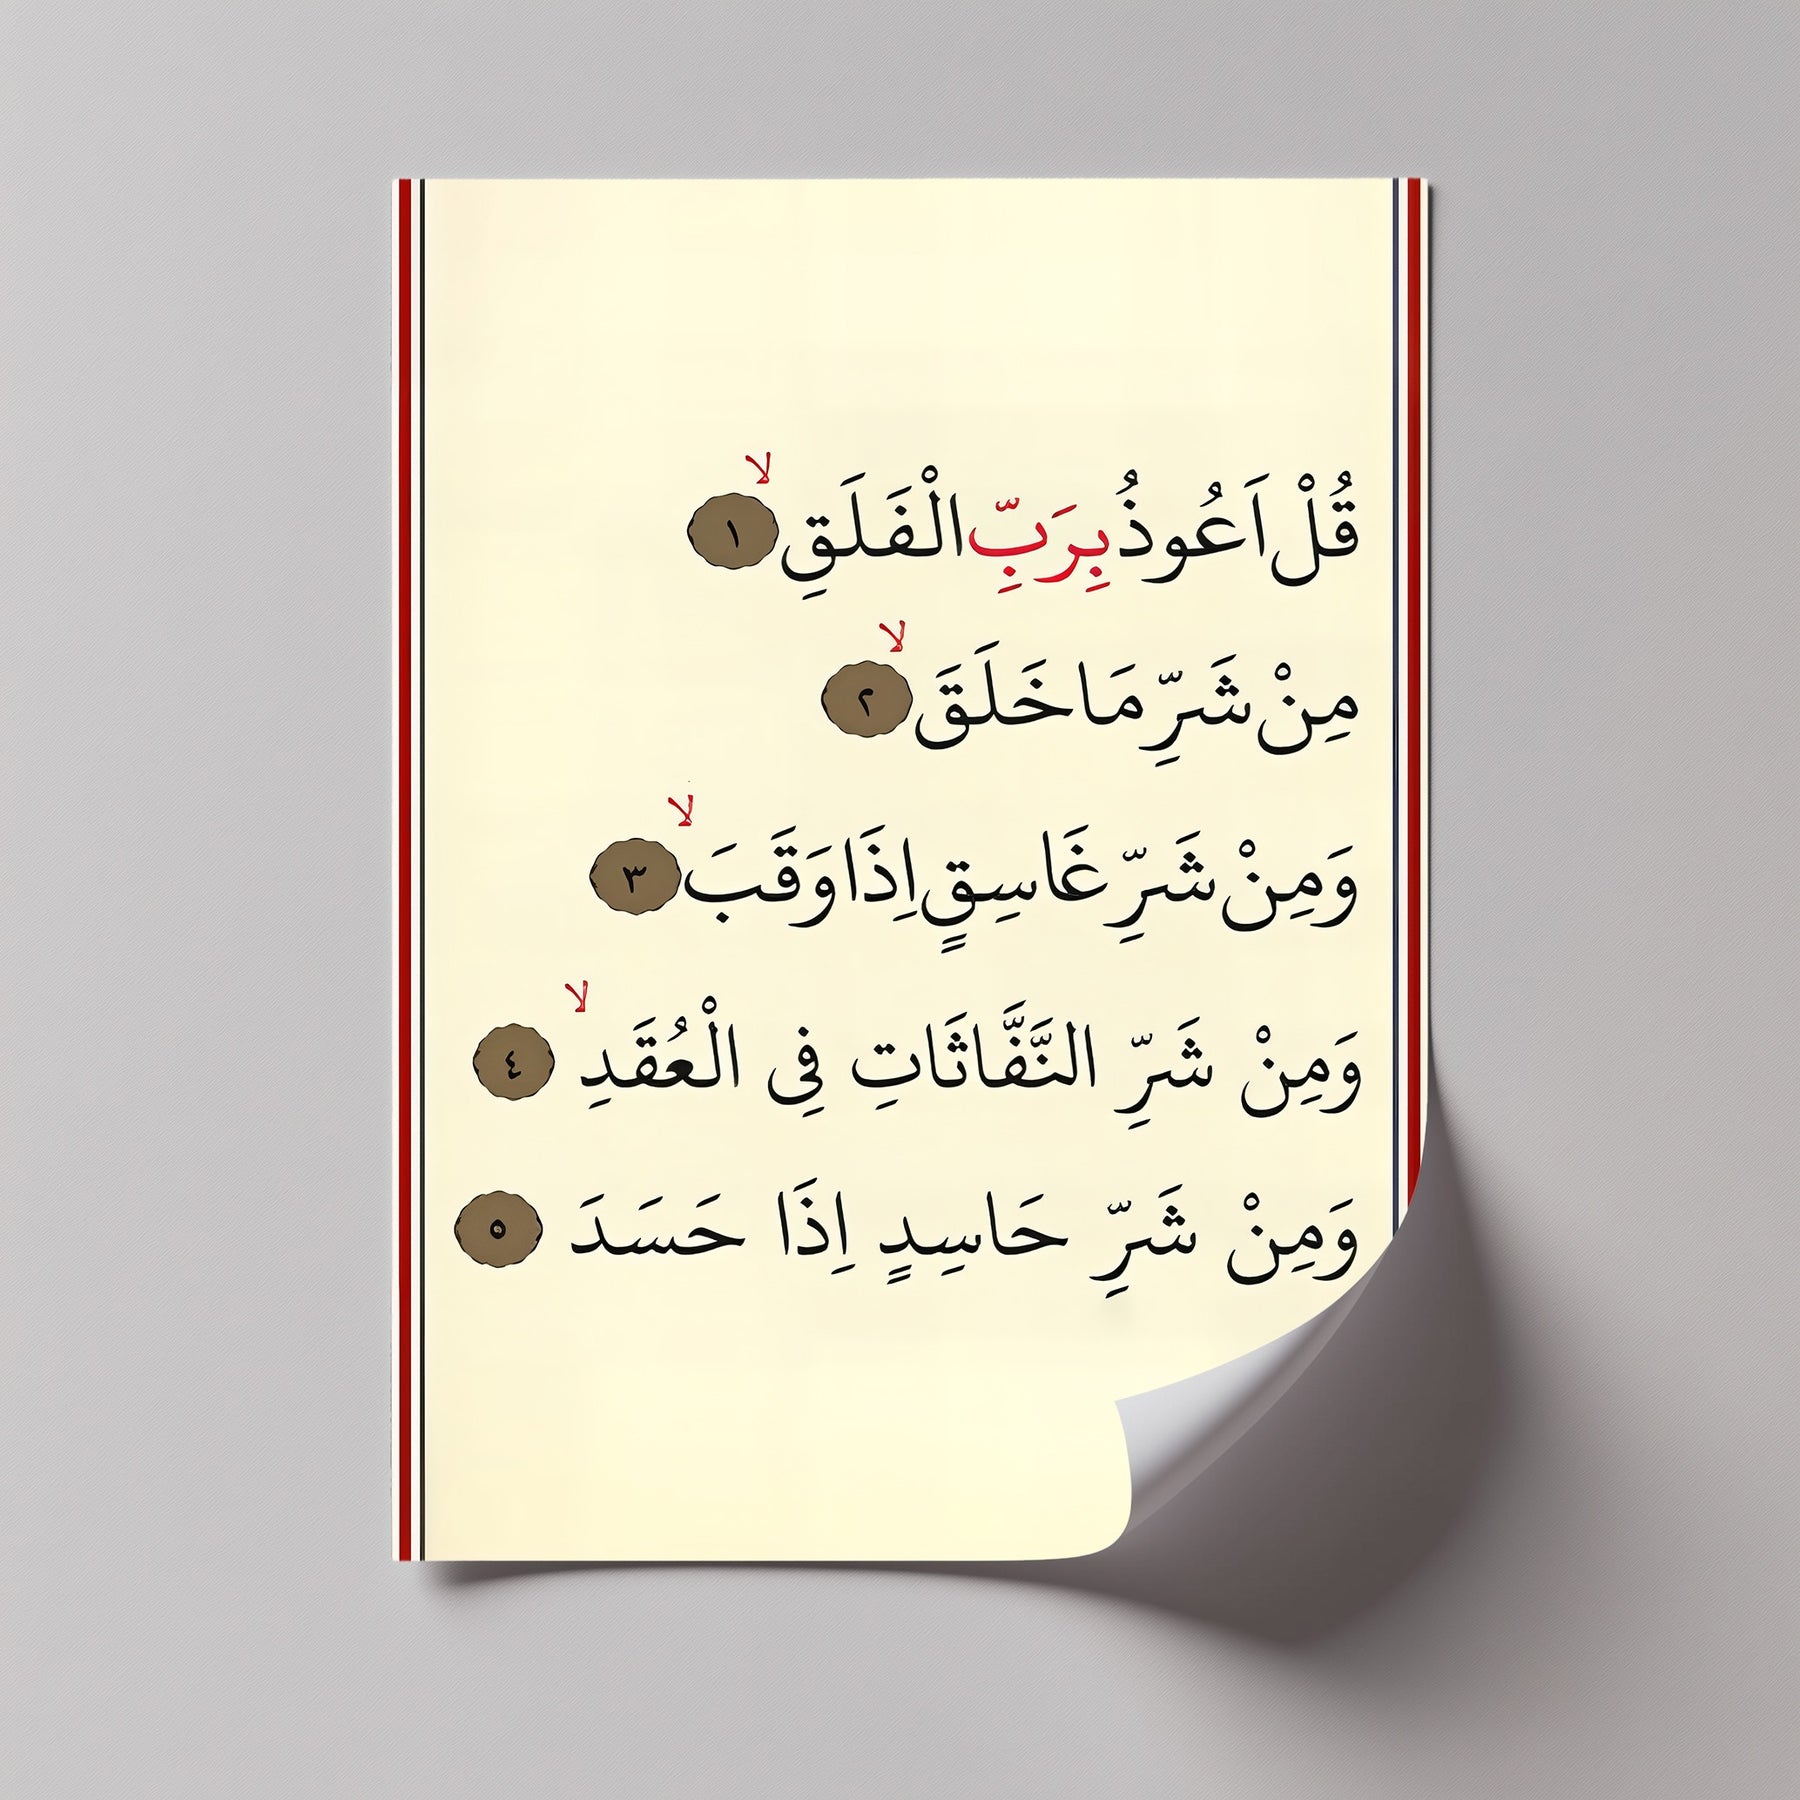 قُلْ اَعُوذُ بِرَبِّ الْفَلَقِ ۙ ١
مِنْ شَرِّ مَا خَلَقَ ۙ ٢
وَمِنْ شَرِّ غَاسِقٍ اِذَا وَقَبَ ۙ ٣
وَمِنْ شَرِّ النَّفَّاثَاتِ فِى الْعُقَدِ ۙ ٤
وَمِنْ شَرِّ حَاسِدٍ اِذَا حَسَدَ ٥